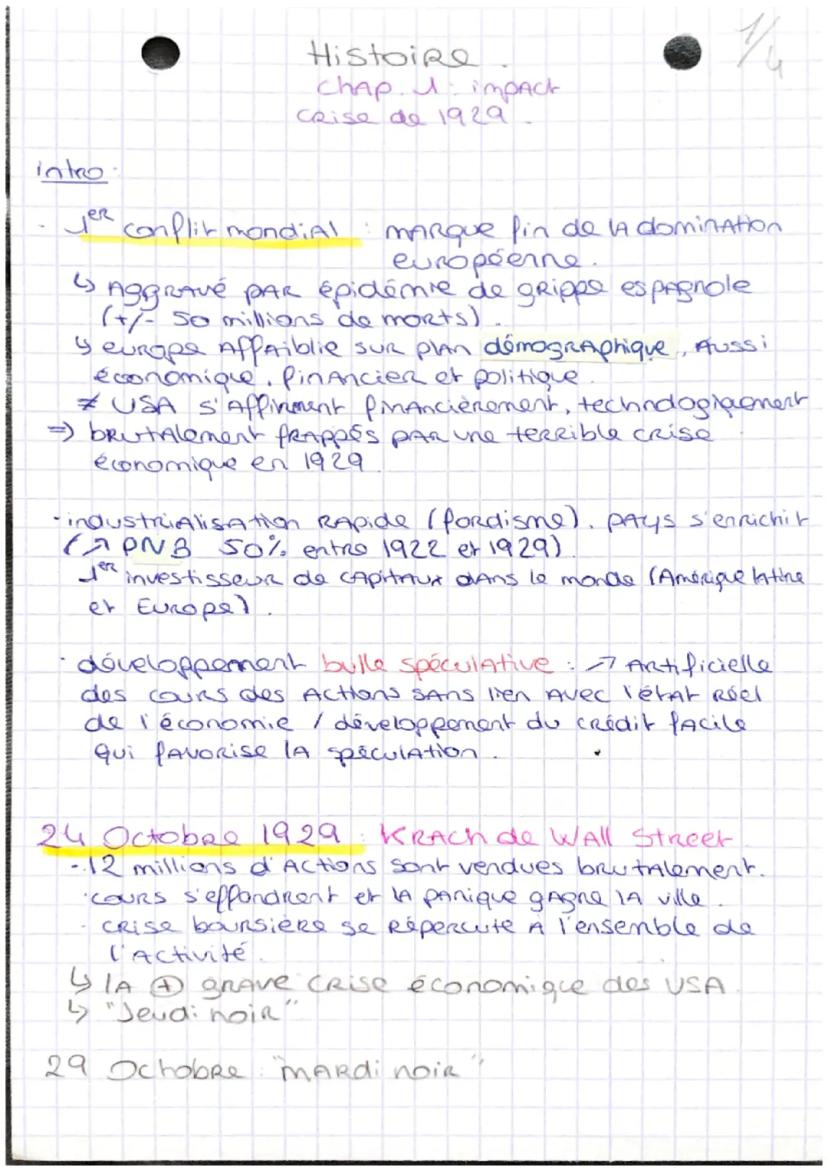 1/4
Histoire.
Chap. 1: impact
crise de 1929.
intro:
- 1er conflit mondial : marque fin de la domination
européenne.
↳ Aggravé par épidémie de grippe espagnole
(+/- 50 millions de morts).
↳ europe affaiblie sur plan démographique, aussi
économique, financier et politique.
≠ USA s'affirment financièrement, technologiquement
=> brutalement frappés par une terrible crise
économique en 1929.
- industrialisation rapide (fordisme). pays s'enrichit
(↗ PNB 50% entre 1922 et 1929)
1er investisseur de capitaux dans le monde (Amérique latine
et Europe).
· développement bulle spéculative : ↗ Artificielle
des cours des actions sans lien avec l'état réel
de l'économie / développement du crédit facile
qui favorise la spéculation.
24 Octobre 1929 : Krach de Wall Street
- 12 millions d'actions sont vendues brutalement.
· cours s'effondrent et la panique gagne la ville.
· crise boursière se répercute à l'ensemble de
l'activité.
↳ la ⊕ grave crise économique des USA
↳ "Jeudi noir"
29 Octobre : "mardi noir"